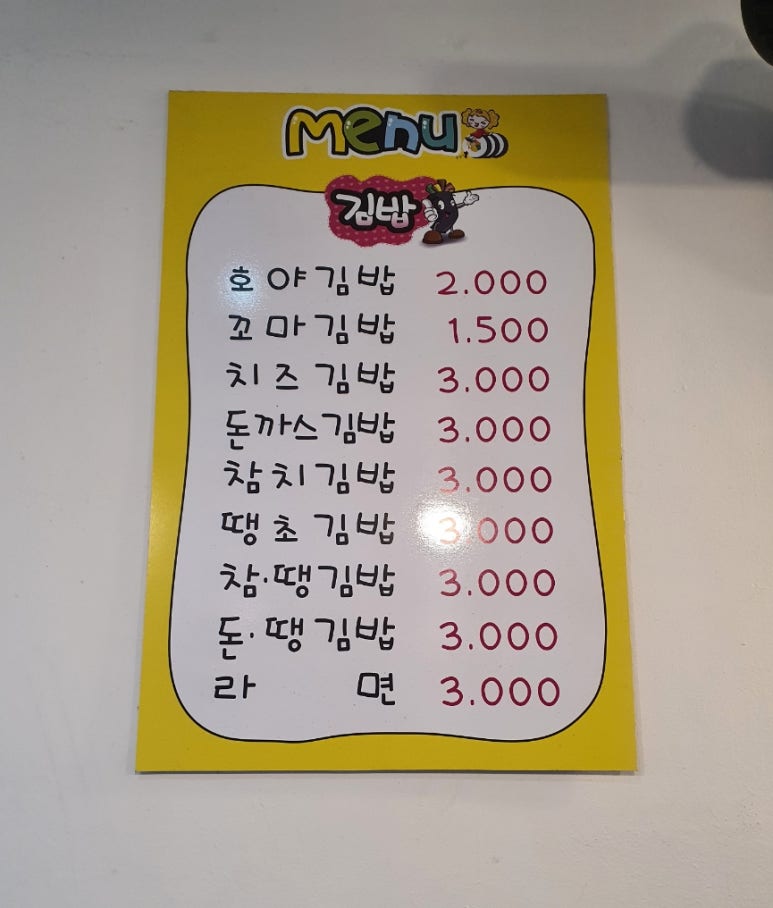 Menu
김밥
호야김밥 2.000
꼬마김밥 1.500
치즈김밥 3.000
돈까스김밥 3.000
참치김밥 3.000
땡초김밥 3.000
참·땡김밥 3.000
돈·땡김밥 3.000
라면 3.000